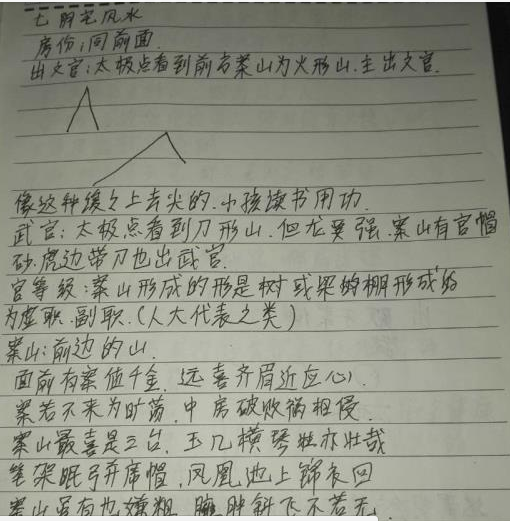 七阴宅风水
房份:同前面.
出文官:太极点看到前方案山为火形山.主出文官.
像这种缓缓上去尖的.小孩读书用功.
武官:太极点看到刀形山.但龙要强.案山有官帽
砂.虎边带刀也出武官.
官等级:案山形成的形是树或果的棚形成的
为虚职.副职.(人大代表之类)
案山:前边的山.
面前有案值千金.远喜齐眉近应心.
案若不来为旷荡.中房破败祸相侵.
案山最喜是三台.玉几横琴壮亦壮哉
笔架眠弓并席帽.凤凰池上锦衣回
案山虽有也嫌粗.臃肿斜飞不若无